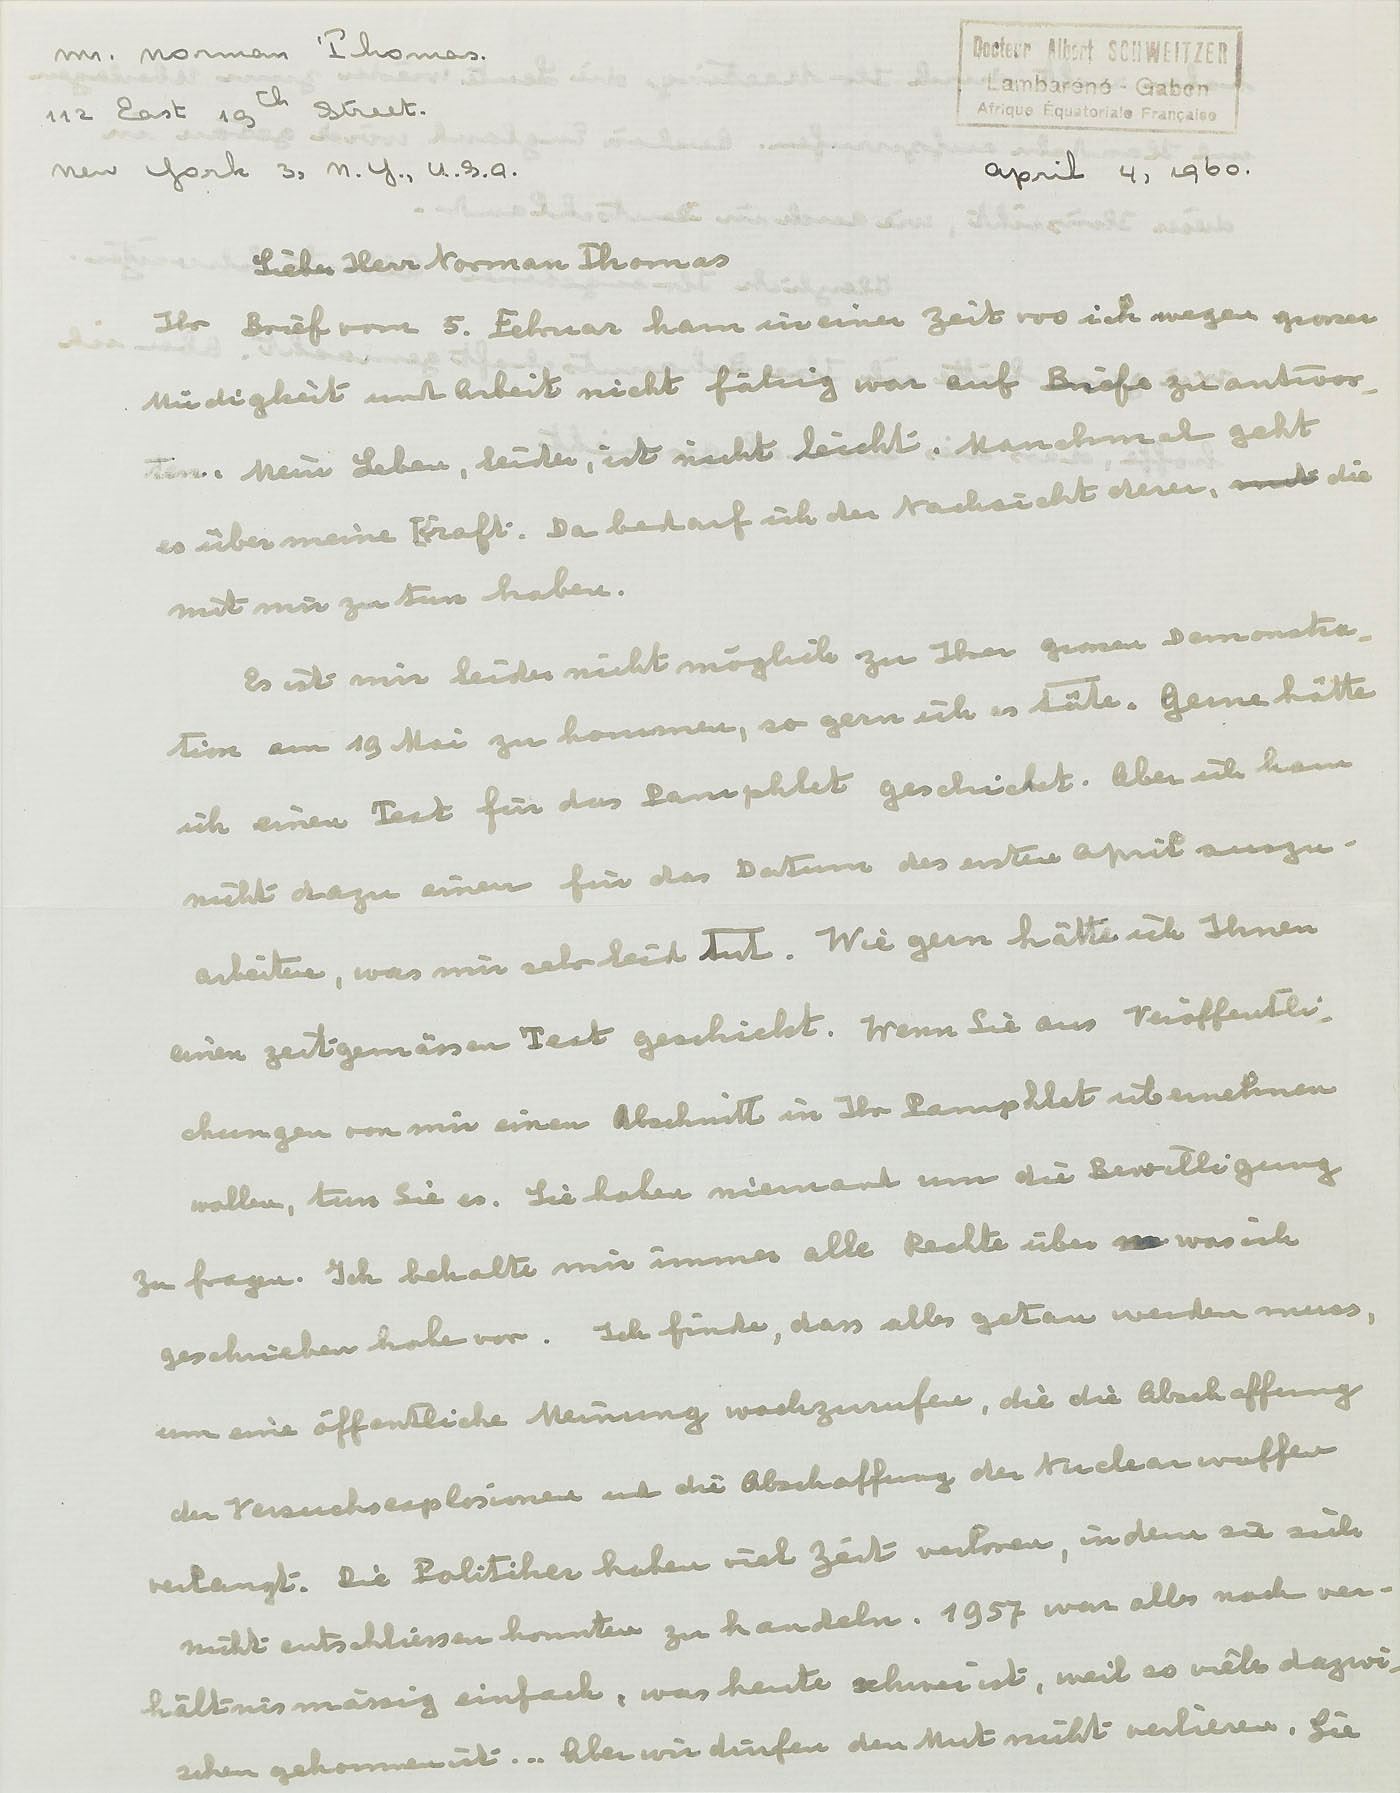 Mr. Norman Thomas.
112 East 19th Street.
New York 3, N.Y., U.S.A.
Docteur Albert SCHWEITZER
Lambaréné - Gabon
Afrique Équatoriale Française
April 4, 1960.
Lieber Herr Norman Thomas
Ihr Brief vom 5. Februar kam in einer Zeit wo ich wegen grosser
Müdigkeit und Arbeit nicht fähig war auf Briefe zu antwor-
ten. Mein Leben, leider, ist nicht leicht. Manchmal geht
es über meine Kraft. Da bedarf ich der Nachsicht derer, die
mit mir zu tun haben.
Es ist mir leider nicht möglich zu Ihrer grossen Demonstra-
tion am 19 Mai zu kommen, so gern ich es täte. Gerne hätte
ich einen Text für das Pamphlet geschickt. Aber ich kam
nicht dazu einen für das Datum des ersten April auszu-
arbeiten, was mir sehr leid tut. Wie gern hätte ich Ihnen
einen zeitgemässen Text geschickt. Wenn Sie aus Veröffentli-
chungen von mir einen Abschnitt in Ihr Pamphlet übernehmen
wollen, tun Sie es. Sie haben niemand um die Bewilligung
zu fragen. Ich behalte mir immer alle Rechte über was ich
geschrieben habe vor. Ich finde, dass alles getan werden muss,
um eine öffentliche Meinung wachzurufen, die die Abschaffung
der Versuchsexplosionen und die Abschaffung der Nuclearwaffen
verlangt. Die Politiker haben viel Zeit verloren, indem sie sich
nicht entschliessen konnten zu handeln. 1957 war alles noch ver-
hältnismässig einfach, was heute schwer ist, weil so vieles dazwi-
schen gekommen ist... Aber wir dürfen den Mut nicht verlieren. Sie